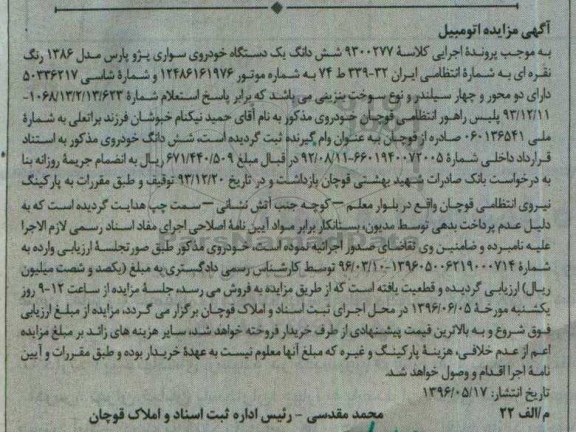 آگهی مزایده اتومبیل
به موجب پروندۀ اجرایی کلاسۀ ۹۳۰۰۲۷۷ شش دانگ یک دستگاه خودروی سواری پژو پارس مدل ۱۳۸۶ رنگ
نقره ای به شمارۀ انتظامی ایران ۳۲-۳۳۹ ط ۷۴ به شماره موتور ۱۲۴۸۶۱۶۱۹۷۶ و شمارۀ شاسی ۵۰۳۳۶۲۱۷
دارای دو محور و چهار سیلندر و نوع سوخت بنزینی می باشد که برابر پاسخ استعلام شمارۀ ۱۰۶۸/۱۳/۲/۱۳/۶۲۳-
۹۳/۱۲/۱۱ پلیس راهور انتظامی قوچان خودروی مذکور به نام آقای حمید نیکنام خبوشان فرزند براتعلی به شمارۀ
ملی ۰۶۰۱۳۶۵۴۱ صادره از قوچان به عنوان وام گیرنده ثبت گردیده است، شش دانگ خودروی مذکور به استناد
قرارداد داخلی شمارۀ ۶۶۰۱۹۴۰۰۷۲۰۰۵-۹۲/۰۸/۱۱ در قبال مبلغ ۶۷۱/۴۴۰/۵۰۹ ریال به انضمام جریمۀ روزانه بنا
به درخواست بانک صادرات شهید بهشتی قوچان بازداشت و در تاریخ ۹۳/۱۲/۲۰ توقیف و طبق مقررات به پارکینگ
نیروی انتظامی قوچان واقع در بلوار معلم – کوچه جنب آتش نشانی – سمت چپ هدایت گردیده است که به
دلیل عدم پرداخت بدهی توسط مدیون، بستانکار برابر مواد آیین نامۀ اصلاحی اجرای مفاد اسناد رسمی لازم الاجرا
علیه نامبرده و ضامنین وی تقاضای صدور اجرائیه نموده است، خودروی مذکور طبق صورتجلسۀ ارزیابی وارده به
شمارۀ ۱۳۹۶۰۵۰۰۶۲۱۹۰۰۰۷۱۴-۹۶/۰۳/۱۰ توسط کارشناس رسمی دادگستری به مبلغ (یکصد و شصت میلیون
ریال) ارزیابی گردیده و قطعیت یافته است که از طریق مزایده به فروش می رسد، جلسۀ مزایده از ساعت ۱۲-۹ روز
یکشنبه مورخۀ ۱۳۹۶/۰۶/۰۵ در محل اجرای ثبت اسناد و املاک قوچان برگزار می گردد، مزایده از مبلغ ارزیابی
فوق شروع و به بالاترین قیمت پیشنهادی از طرف خریدار فروخته خواهد شد، سایر هزینه های زائد بر مبلغ مزایده
اعم از عدم خلافی، هزینۀ پارکینگ و غیره که مبلغ آنها معلوم نیست به عهدۀ خریدار بوده و طبق مقررات و آیین
نامۀ اجرا اقدام و وصول خواهد شد.
تاریخ انتشار: ۱۳۹۶/۰۵/۱۷
م/الف ۲۲ محمد مقدسی – رئیس اداره ثبت اسناد و املاک قوچان